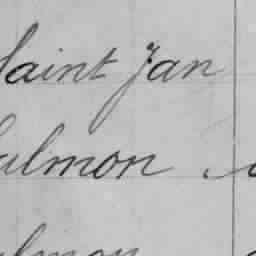 Saint Jan
Salmon
almon